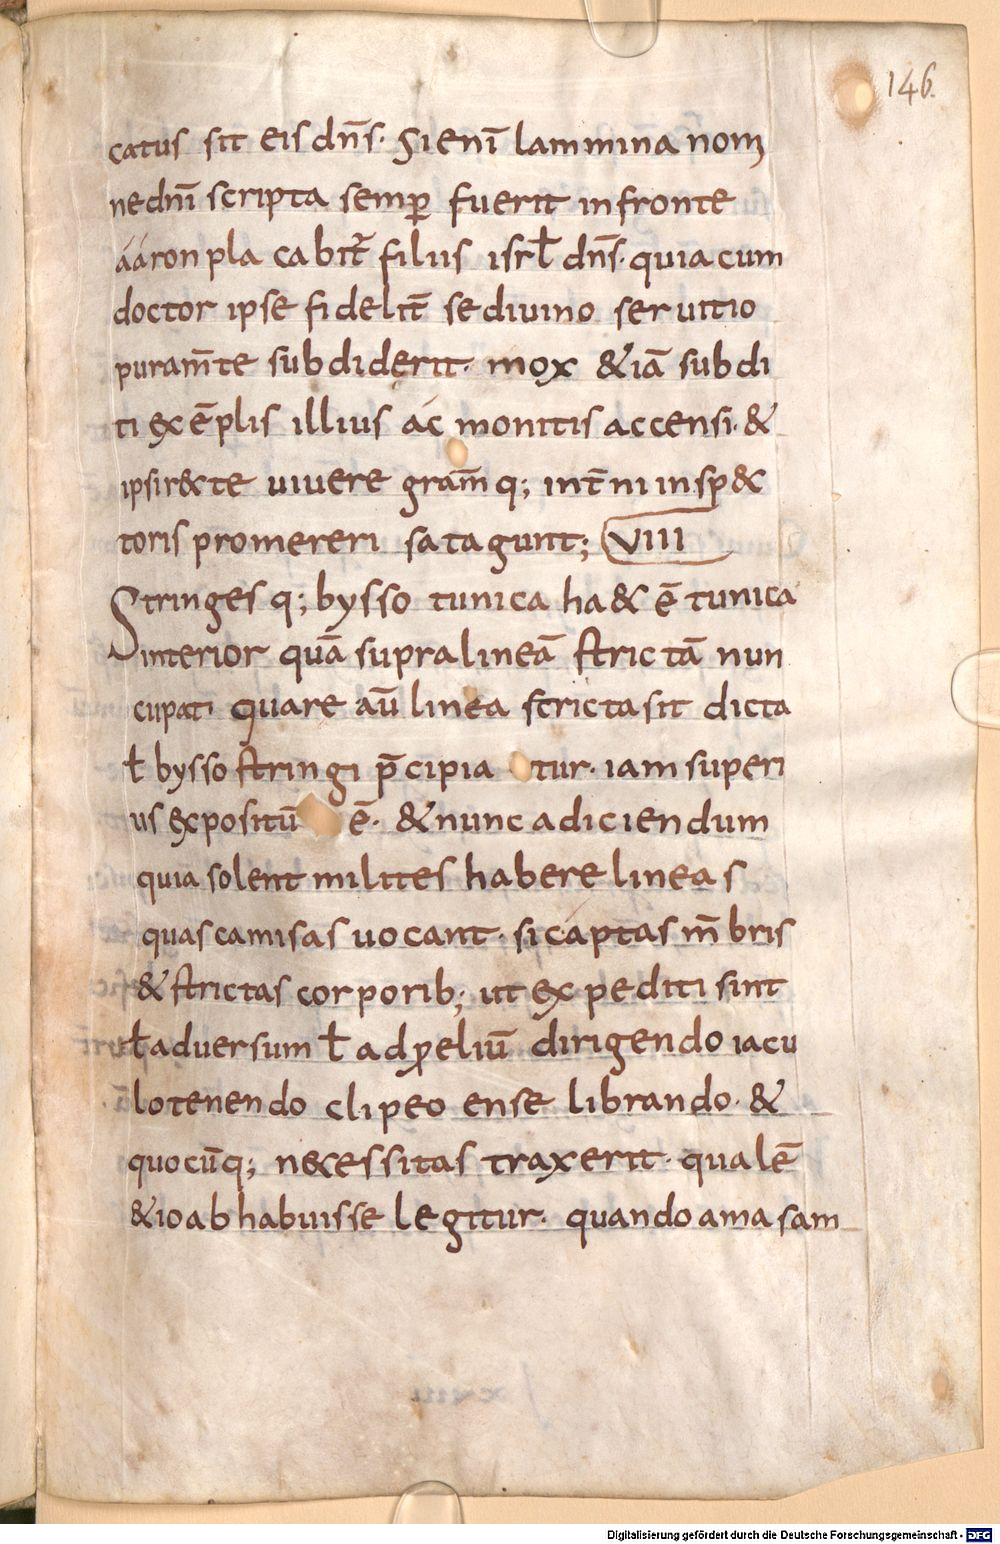 146.
catus sit eis dn̄s· Si eni͞ lammina nomi
ne dni͞ scripta semꝑ fuerit in fronte
ááron placabit᷑ filiis isrł dn̄s· quia cum
doctor ipse fidelit͞ se divino servitio
puram̄te subdiderit· mox &iā subdi
ti exēplis illius ac monitis accensi· &
ipsi r&cte vivere gram̄q; int̄ni insp&c
toris promereri satagunt; VIII
Stringesq; bysso tunica ha& ē tunica
interior quā supra lineā strictā nun
cupati quare aū linea stricta sit dicta
ł bysso stringi p̄cipia tur· iam superi
us expositū ē· & nunc adiciendum
quia solent milites habere lineas
quas camisas vocant· sic aptas m̄bris
& strictas corporib; ut expediti sint
ł adversum ł ad p̄eliū dirigendo iacu
lo tenendo clipeo ense librando· &
quocūq; necessitas traxerit· qualē
& ioab habuisse legitur· quando amasam
Digitalisierung gefördert durch die Deutsche Forschungsgemeinschaft - DFG